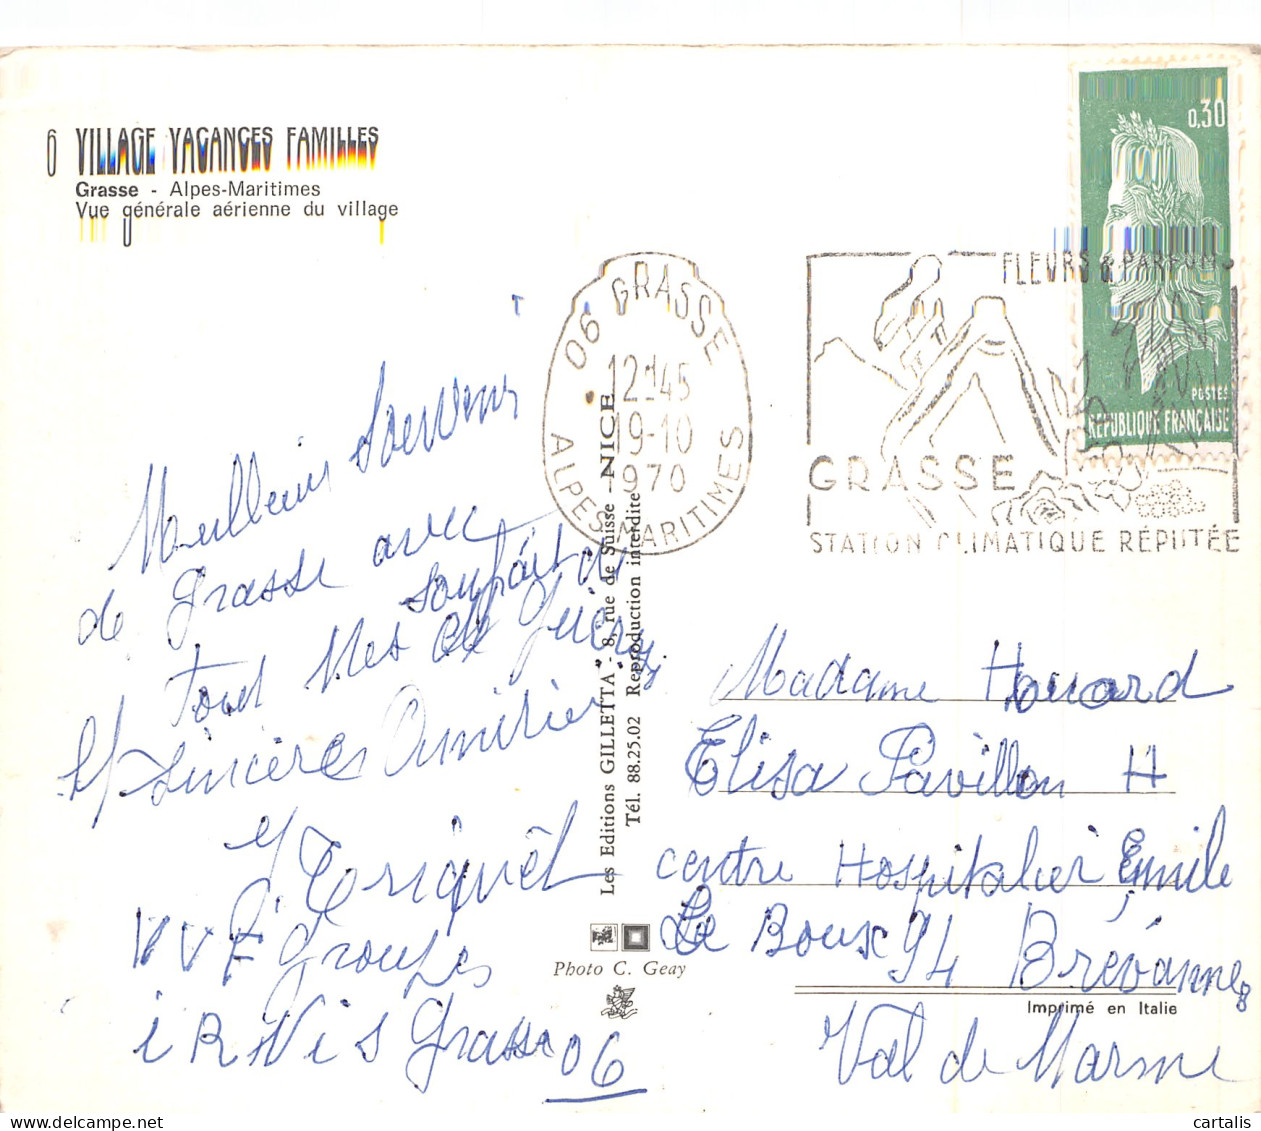 6 VILLAGE VACANCES FAMILLES
Grasse - Alpes-Maritimes
Vue générale aérienne du village
0,30
POSTES
REPUBLIQUE FRANÇAISE
06 GRASSE
12H45
19-10
1970
ALPES MARITIMES
FLEURS & PARFUMS
GRASSE
STATION CLIMATIQUE RÉPUTÉE
Meilleurs Souvenirs
de Grasse avec
tout mes souhait de Guéris
sincères Amitiés
VVF Groupes
iRiVis Grasse 06
Les Editions GILLETTA - 8, rue de Suisse - NICE
Tél. 88.25.02 Reproduction interdite
Photo C. Geay
Madame Houard
Elisa Pavillon H
centre Hospitalier Emile
Le Boux 94 Brévannes
Val de Marne
Imprimé en Italie
cartalis